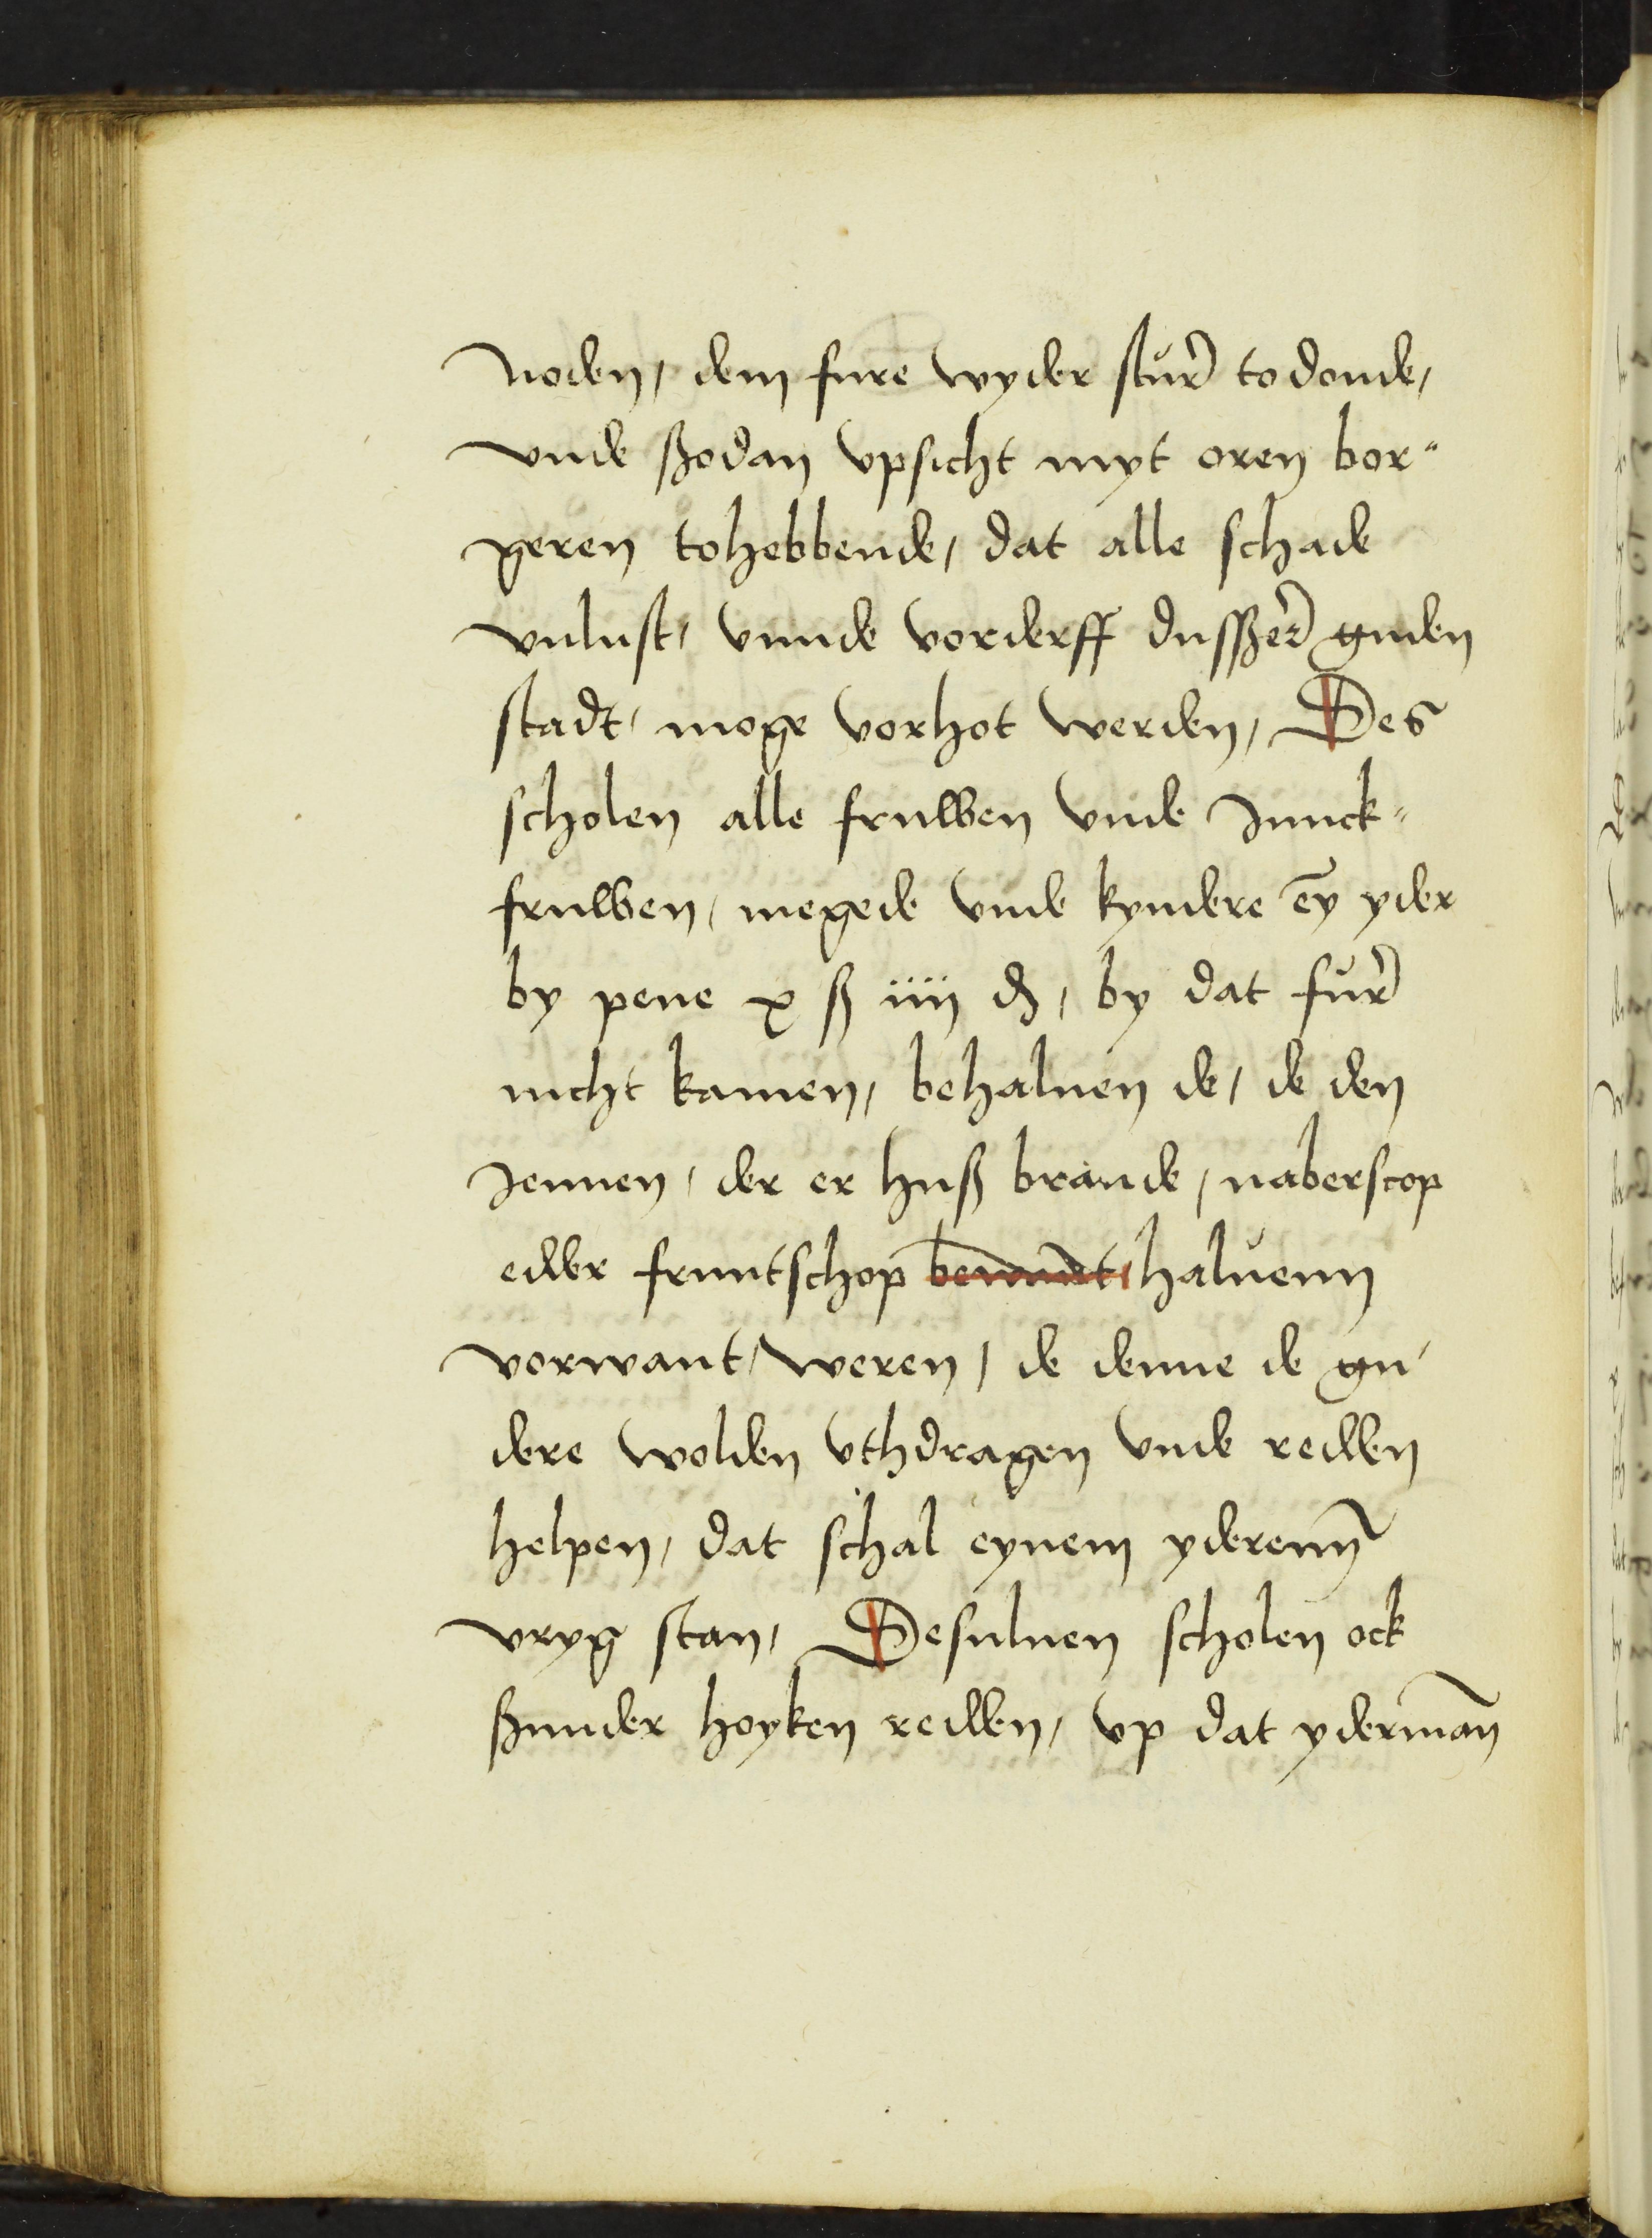 noden, dem fure wyder stur̉ to donde,
vnde ßodan vpsicht myt oren bor⸗
geren tohebbende, dat alle schade
vnlust, vnnde vorderff dusßer̉ guden
stadt, moge vorhot werden, Des
scholen alle fruwen vnde Junck⸗
fruwen, megede vnde kyndere eȳ yder
by pene x ß iiij ₰, by dat fur̉
nicht kamen, behaluen de, de den
Jennen, der er huß brande, naberscop
edder fruntschop haluenn
vorwant, weren, de denne de gu⸗
dere wolden vthdragen vnde redden
helpen, dat schal eynem yderenn̄
vryg stan, Desuluen scholen ock
ßunder hoyken redden, vp dat ydermān